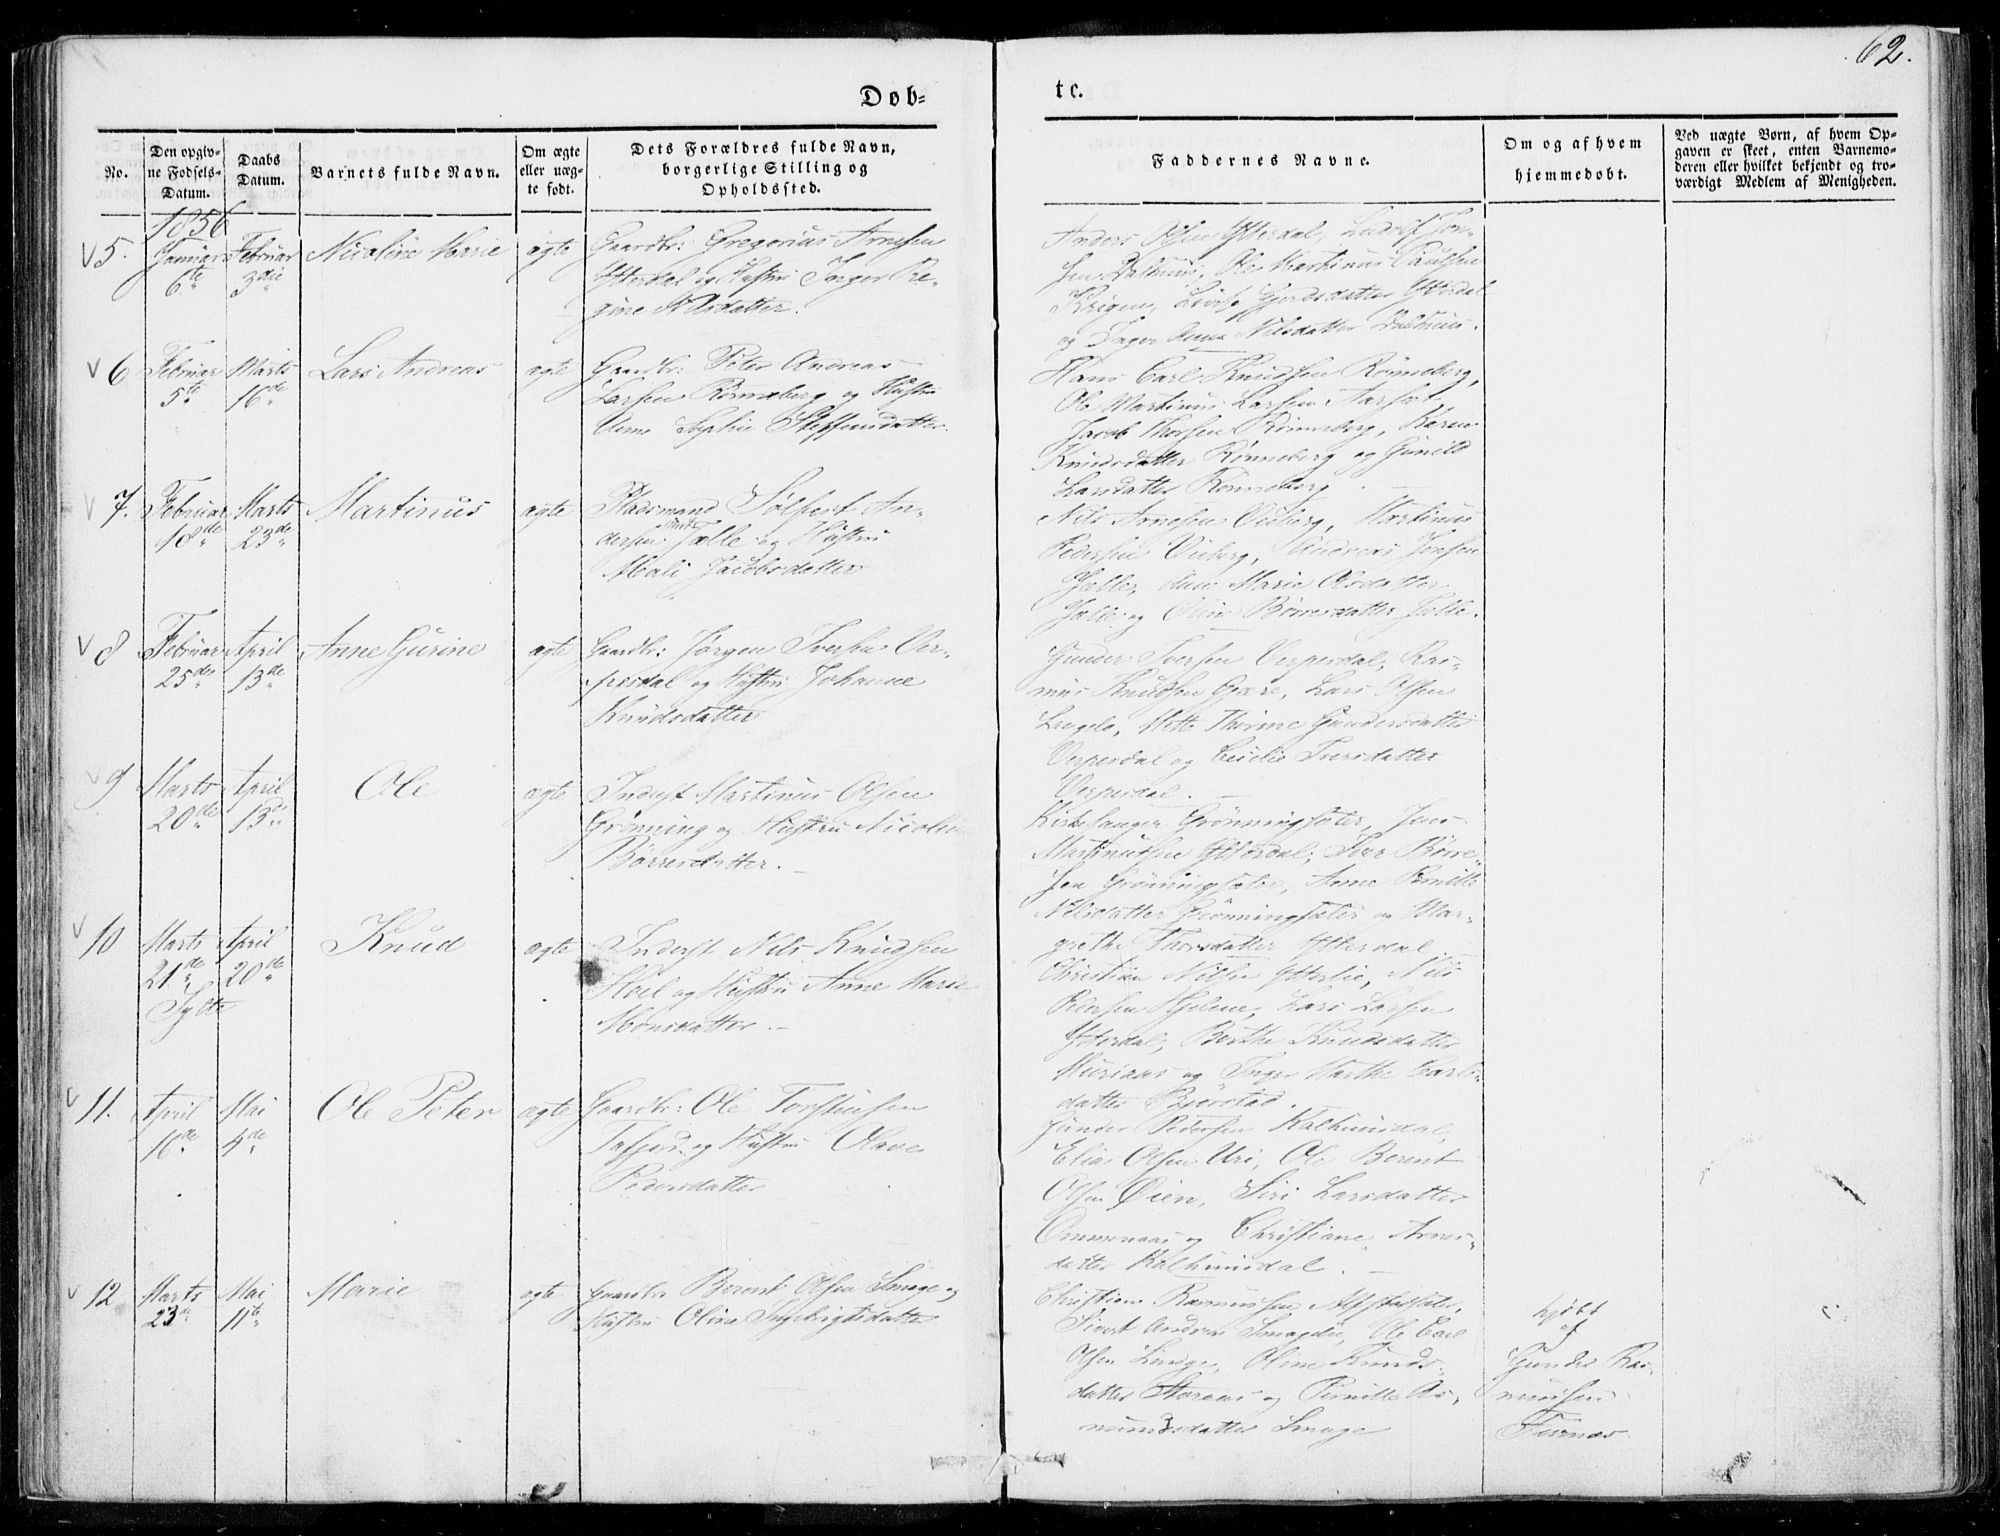 62.
Døb-
te.
No.
Den opgiv-
ne Fødsels-
Datum.
Daabs
Datum.
Barnets fulde Navn.
Om ægte
eller uæg-
te født.
Dets Forældres fulde Navn,
borgerlige Stilling og
Opholdssted.
Faddernes Navne.
Om og af hvem
hjemmedøbt.
Ved uægte Børn, af hvem Op-
gaven er skeet, enten Barnemo-
deren eller hvilket bekjendt og tro-
værdigt Medlem af Menigheden.
1856
5.
Januar
6te
Februar
3die
Nicoline Marie
ægte
Gaardbr: Gregorius Arnesen
Ytterdal og Hustru Inger Re-
gine Nilsdatter.
Anders Olsen Ytterdal, Ludolf Jon-
sen Dalhuus, Ole Martinus
Gjordsdatter Ytterdal
og Inger Anna Nilsdatter Dalhuus.
6
Februar
5te
Marts
16de
Lars Andreas
ægte
Gaardbr: Peter Andreas
Larsen Rønneberg og Hustru
Anne Sophie Steffensdatter.
Hans Carl Knudsen Rønneberg,
Ole Martinus Larsen Aarset,
Jacob Thorsen Rønneberg, Karen
Knudsdatter Rønneberg og Gunild
Larsdatter Rønneberg.
7.
Februar
18de
Marts
23de
Martinus
ægte
Pladsmand Sølfest An-
dersen Jælle og Hustru
Mali Jacobsdatter
Nils Arnesen Viiberg, Martinus
Pedersen Viiberg, Andreas Jonsen
Jælle, Ane Marie
Jælle og Børresdatter Jælle.
8
Februar
25de
April
13de
Anne Gurine
ægte
Gaardbr: Jørgen Iversen Ver-
persdal og Hustru Johanne
Knudsdatter
Gunder Iversen Verpesdal, Ras-
mus Knudsen Gjære, Lars Olsen
Langelo, Mette Thorine Gundersdatter
Verpesdal og Cecilie Iversdatter
Verpesdal.
9
Marts
20de
April
13de
Ole
ægte
Inderst Martinus Olsen
Grønning og Hustru Nicoline
Børresdatter.
Kirkesanger Grønningsæter, Jens
Martinussen Ytterdal, Iver Børre-
sen Grønningsæter, Anne Pernille
Nilsdatter Grønningsæter og Mar-
grethe Thorsdatter Ytterdal
10
Marts
21de
Sylte
April
20de
Knud
ægte
Inderst Nils Knudsen
Hoel og Hustru Anne Marie
Monsdatter.
Christian Nilsen Ytterlie, Nils
Pedersen Hjelme, Lars Larsen
Ytterdal, Berthe Knudsdatter
Muriaas og Inger Marthe Carls-
datter Bjørstad.
11.
April
16de
Mai
4de
Ole Peter
ægte
Gaardbr: Ole Torsteinsen
Tafjord og Hustru Olave
Pedersdatter
Gunder Pedersen Kalhusdal,
Elias Olsen Uri, Ole Berent
Olsen Øien, Siri Larsdatter
Ommenaas og Christiane Arnes-
datter Kalhusdal.
12
Marts
23de
Mai
11te
Marie
ægte
Gaardbr Berent Olsen Smoge og
Hustru Oline Ingebrigtsdatter
Christian Rasmussen Alfstadsæter,
Sivert Andreas Smogelie, Ole Carl
Olsen Linge, Oline Knuds-
datter Storaas og Pernille As-
mundsdatter Smoge
hjdøbt
af
Gunder Ras-
mussen
Furnæs.